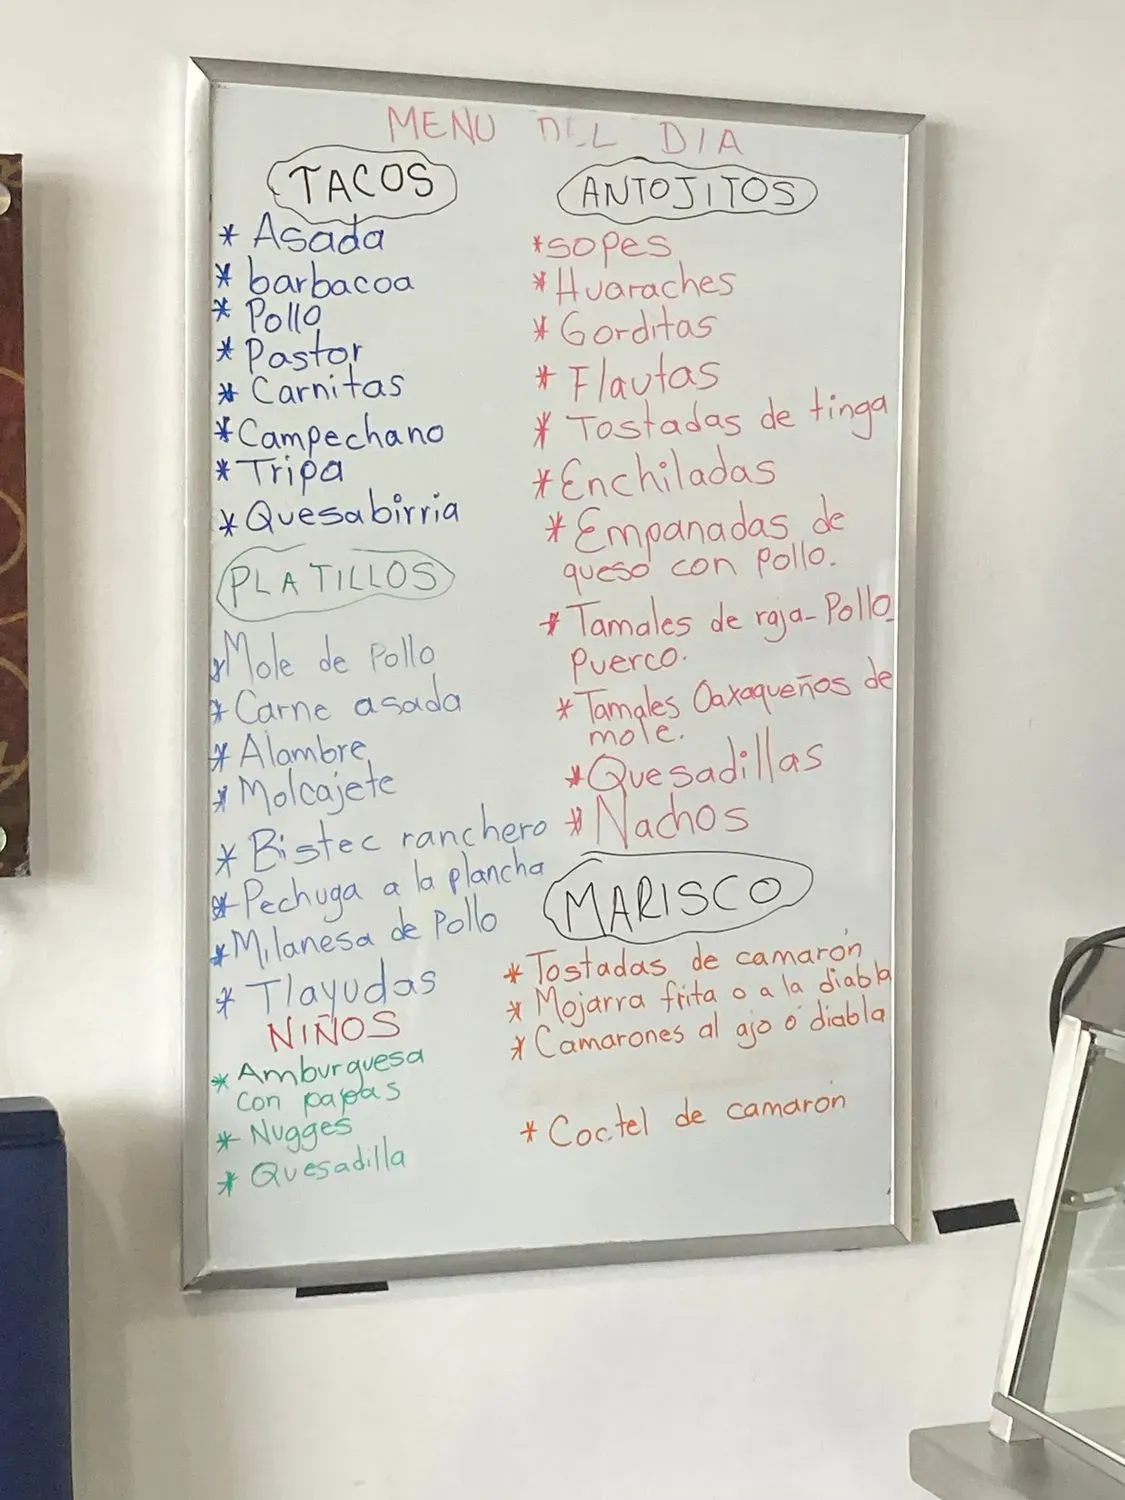 MENU DEL DIA
TACOS
* Asada
* barbacoa
* Pollo
* Pastor
* Carnitas
* Campechano
* Tripa
* Quesabirria
PLATILLOS
* Mole de Pollo
* Carne asada
* Alambre
* Molcajete
* Bistec ranchero
* Pechuga a la plancha
* Milanesa de Pollo
* Tlayudas
NIÑOS
* Amburguesa
con papas
* Nugges
* Quesadilla
ANTOJITOS
* sopes
* Huaraches
* Gorditas
* Flautas
* Tostadas de tinga
* Enchiladas
* Empanadas de
queso con pollo.
* Tamales de raja-Pollo
Puerco.
* Tamales Oaxaqueños de
mole.
* Quesadillas
* Nachos
MARISCO
* Tostadas de camarón
* Mojarra frita o a la diabla
* Camarones al ajo o diabla
* Coctel de camarón